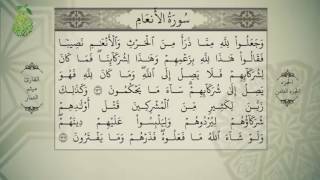 سُورَةُ الأَنْعَامِ
وَجَعَلُوا۟ لِلَّهِ مِمَّا ذَرَأَ مِنَ ٱلْحَرْثِ وَٱلْأَنْعَٰمِ نَصِيبًا
فَقَالُوا۟ هَٰذَا لِلَّهِ بِزَعْمِهِمْ وَهَٰذَا لِشُرَكَآئِنَا ۖ فَمَا كَانَ
لِشُرَكَآئِهِمْ فَلَا يَصِلُ إِلَى ٱللَّهِ ۖ وَمَا كَانَ لِلَّهِ فَهُوَ
يَصِلُ إِلَىٰ شُرَكَآئِهِمْ ۗ سَآءَ مَا يَحْكُمُونَ ﴿١٣٦﴾ وَكَذَٰلِكَ
زَيَّنَ لِكَثِيرٍ مِّنَ ٱلْمُشْرِكِينَ قَتْلَ أَوْلَٰدِهِمْ
شُرَكَآؤُهُمْ لِيُرْدُوهُمْ وَلِيَلْبِسُوا۟ عَلَيْهِمْ دِينَهُمْ ۖ
وَلَوْ شَآءَ ٱللَّهُ مَا فَعَلُوهُ ۖ فَذَرْهُمْ وَمَا يَفْتَرُونَ ﴿١٣٧﴾
الجزء
الجزء الثامن
القارئ
ميثم
التمار